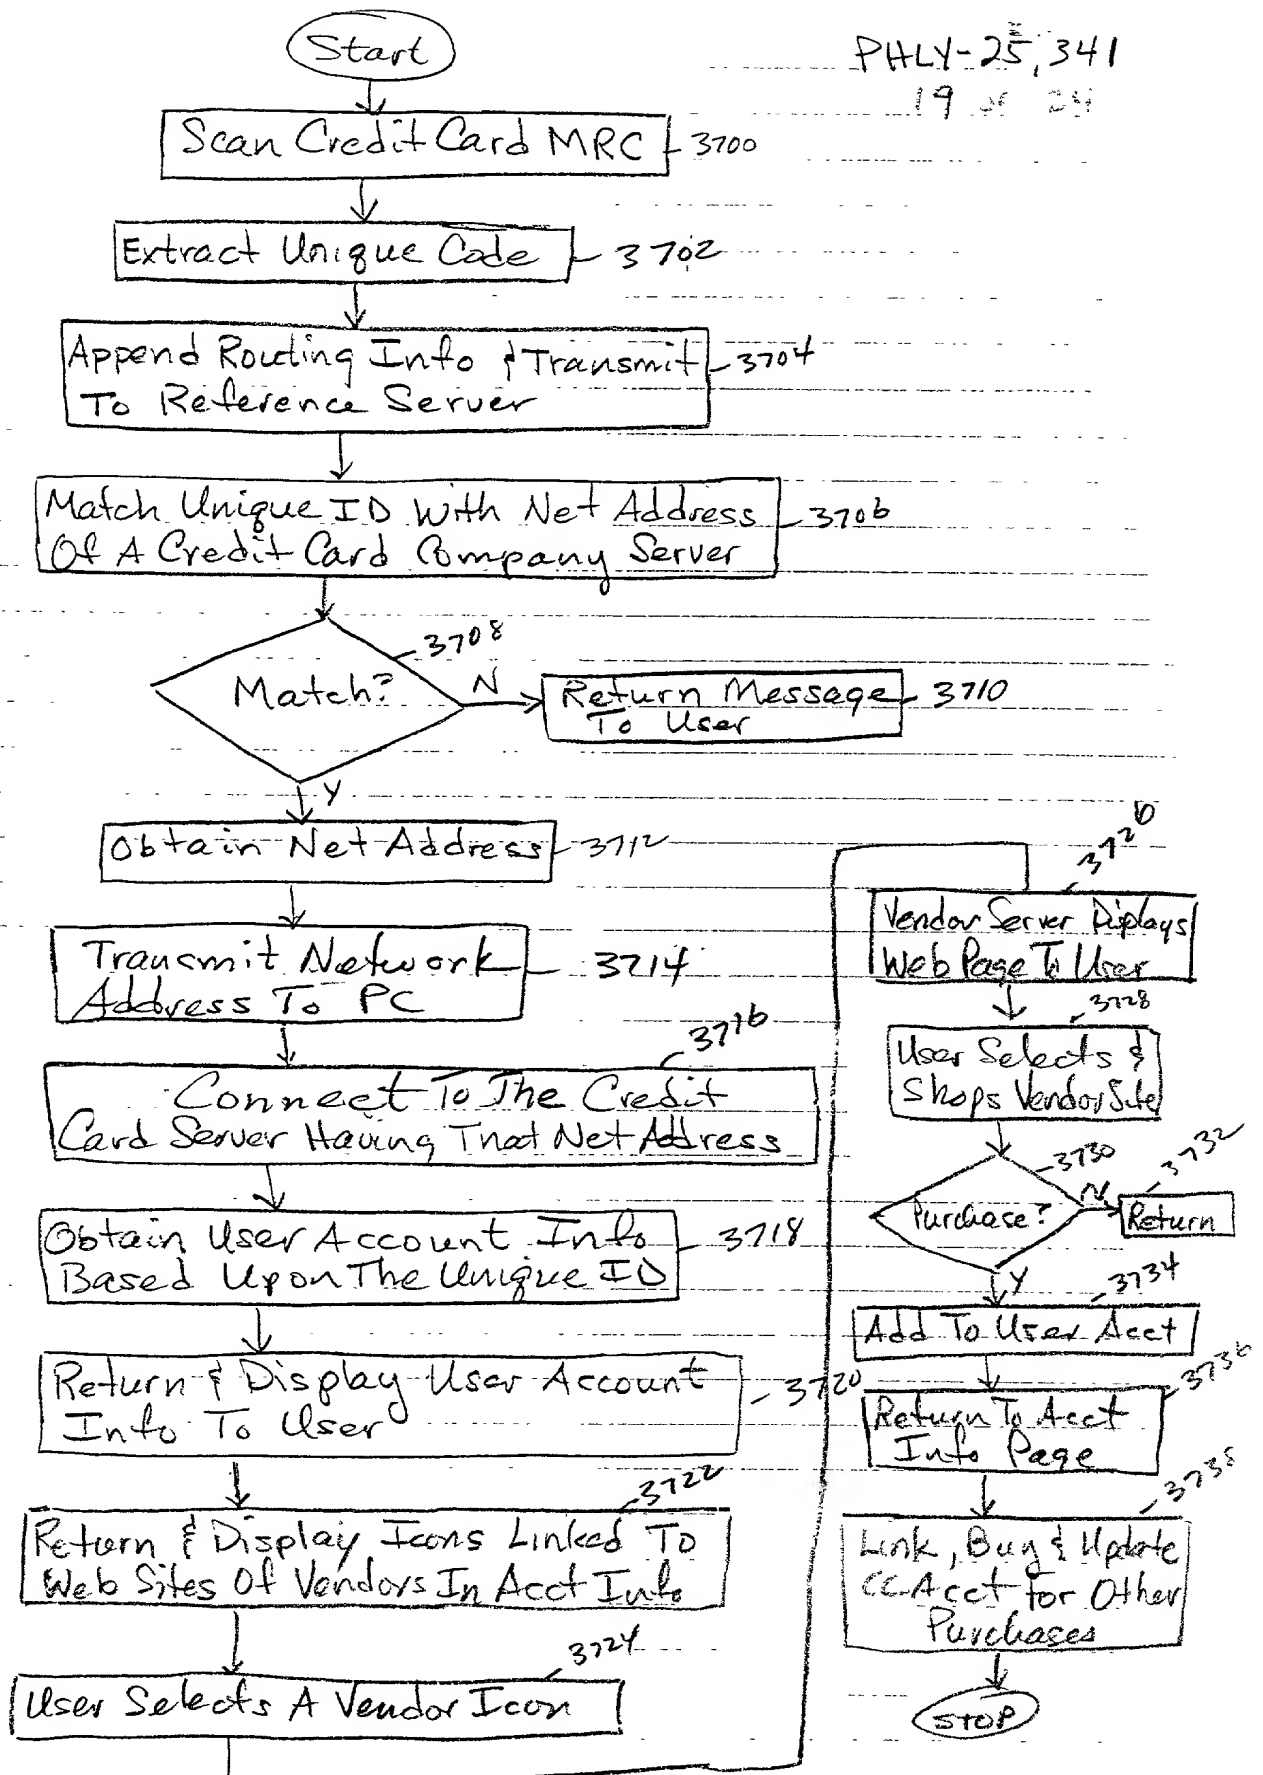 Start
PHLY-25,341
19 of 24
Scan Credit Card MRC 3700
Extract Unique Code 3702
Append Routing Info & Transmit 3704
To Reference Server
Match Unique ID With Net Address 3706
Of A Credit Card Company Server
3708
Match?
N
Return Message 3710
To User
Y
Obtain Net Address 3712
Transmit Network 3714
Address To PC
3716
Connect To The Credit
Card Server Having That Net Address
Obtain User Account Info 3718
Based Upon The Unique ID
Return & Display User Account 3720
Info To User
3722
Return & Display Icons Linked To
Web Sites Of Vendors In Acct Info
3724
User Selects A Vendor Icon
3726
Vendor Server Displays
Web Page To User
3728
User Selects &
Shops Vendor Site
3730
Purchase?
N
3732
Return
Y
3734
Add To User Acct
3736
Return To Acct
Info Page
3738
Link, Buy & Update
CC Acct for Other
Purchases
STOP